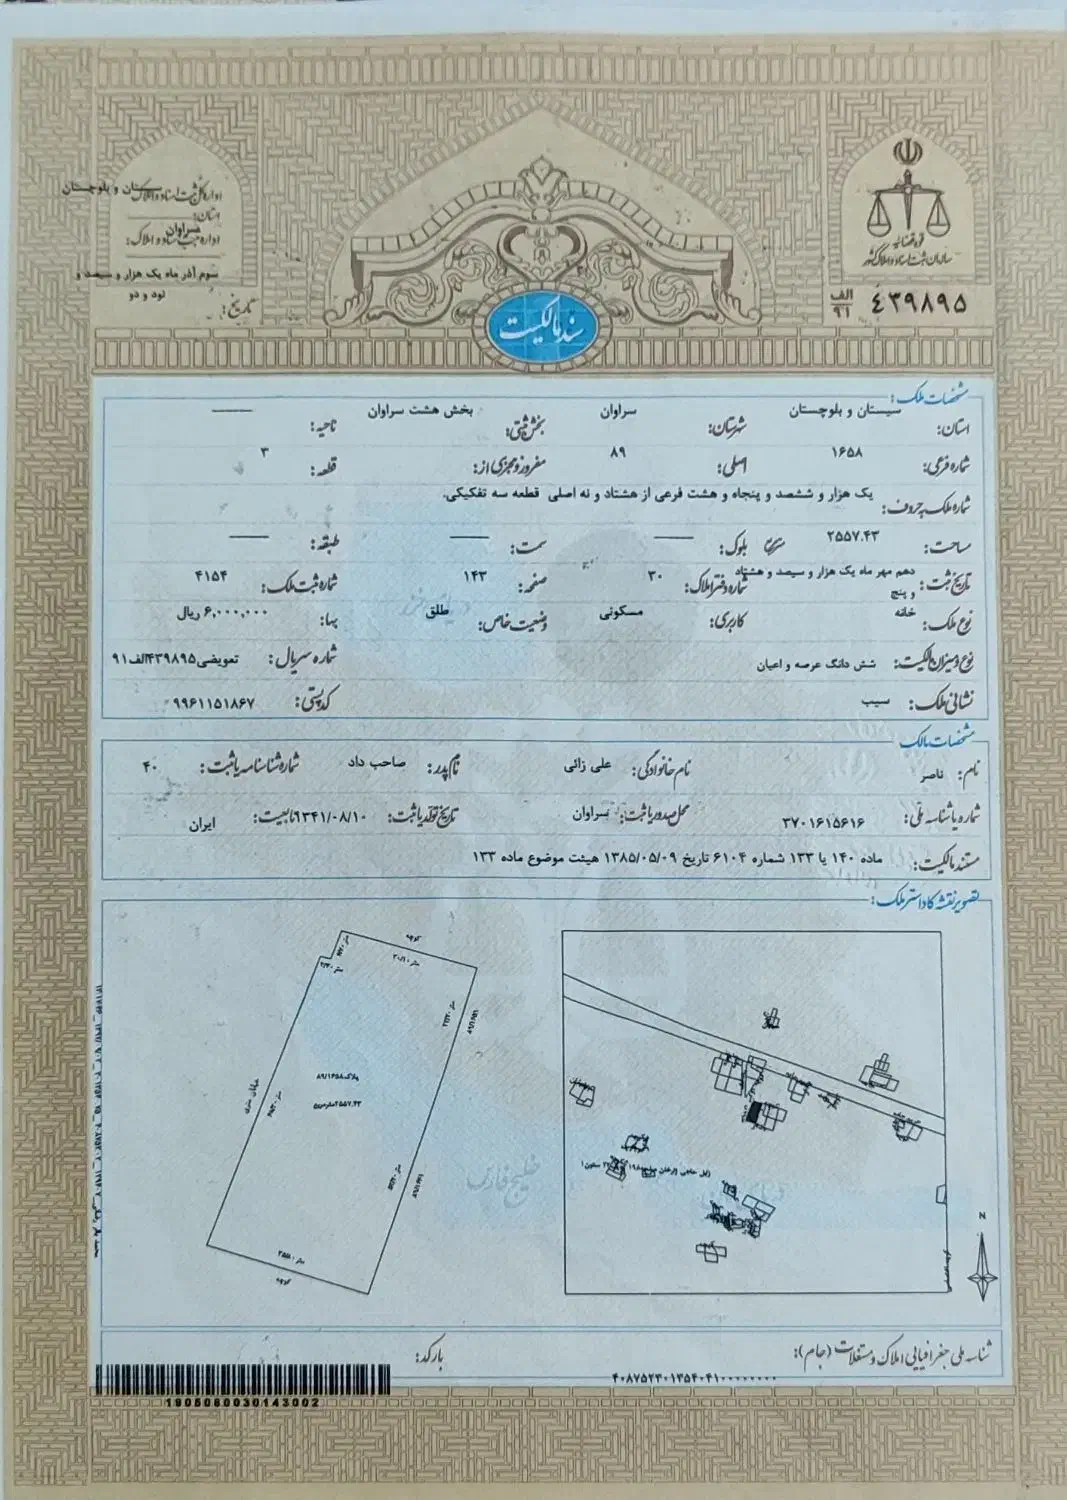 قوه قضائیه
سازمان ثبت اسناد و املاک کشور
۴۳۹۸۹۵ الف ۹۱
اداره کل ثبت اسناد و املاک استان: سیستان و بلوچستان
اداره ثبت اسناد و املاک: سراوان
تاریخ: سوم آذر ماه یک هزار و سیصد و نود و دو
سند مالکیت
مشخصات ملک:
استان: سیستان و بلوچستان شهرستان: سراوان بخش ثبتی: بخش هشت سراوان ناحیه:
شماره فرعی: ۱۶۵۸ اصلی: ۸۹ مفروز و مجزی از: قطعه: ۳
شماره ملک به حروف: یک هزار و ششصد و پنجاه و هشت فرعی از هشتاد و نه اصلی قطعه سه تفکیکی.
مساحت: ۲۵۵۷.۴۳ بلوک: سمت: طبقه:
تاریخ ثبت: دهم مهر ماه یک هزار و سیصد و هشتاد و پنج شماره دفتر املاک: ۳۰ صفحه: ۱۴۳ شماره ثبت ملک: ۴۱۵۴
نوع ملک: خانه کاربری: مسکونی وضعیت خاص: طلق بهاء: ۶,۰۰۰,۰۰۰ ریال
نوع و میزان مالکیت: شش دانگ عرصه و اعیان شماره سریال: تعویضی۴۳۹۸۹۵الف۹۱
نشانی ملک: سیب کد پستی: ۹۹۶۱۱۵۱۸۶۷
مشخصات مالک
نام: ناصر نام خانوادگی: علی زائی نام پدر: صاحب داد شماره شناسنامه یا ثبت: ۴۰
شماره یا شناسه ملی: ۳۷۰۱۶۱۵۶۱۶ محل صدور یا ثبت: سراوان تاریخ تولد یا ثبت: ۱۳۴۱/۰۸/۱۰ تابعیت: ایران
مستند مالکیت: ماده ۱۴۰ یا ۱۳۳ شماره ۶۱۰۴ تاریخ ۱۳۸۵/۰۵/۰۹ هیئت موضوع ماده ۱۳۳
تصویر نقشه کاداستر ملک:
کوچه
پلاک ۸۹/۱۶۵۸
۲۵۵۷.۴۳مترمربع
کوچه
خلیج فارس
N
شناسه ملی جغرافیایی املاک و مستغلات (جام):
۴۰۸۷۵۲۳۰۱۳۵۴۰۴۱۰۰۰۰۰۰۰۰
بارکد:
1905080030143002